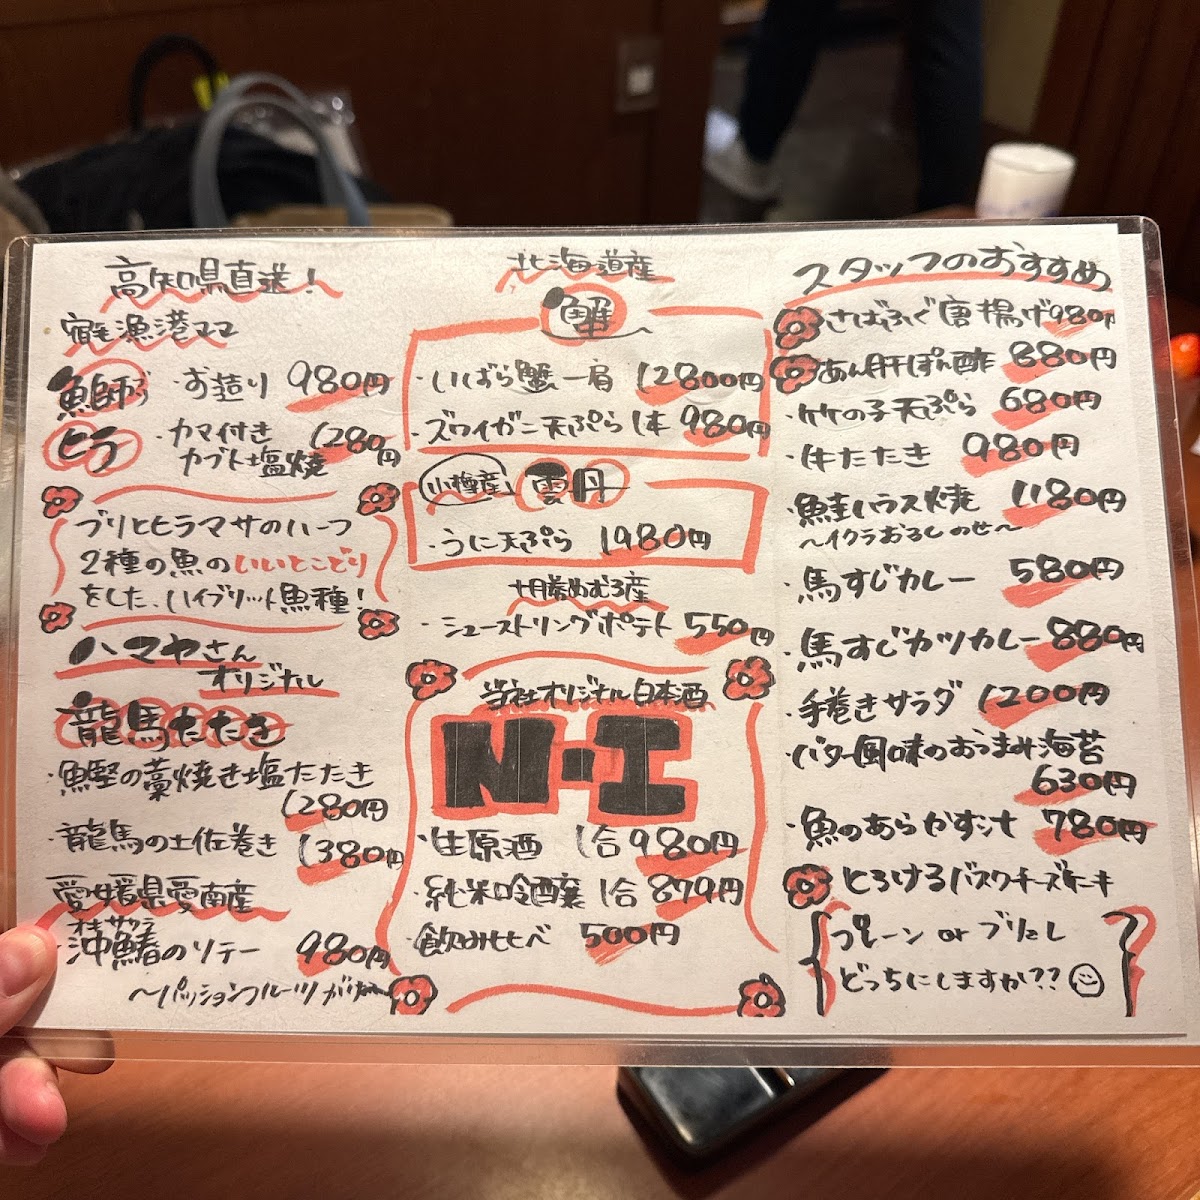 高知県直送！
宿毛漁港ママ
・お造り 980円
ヒラ
・カマ付き
カブト塩焼 1280円
ブリとヒラマサのハーフ
2種の魚のいいとこどり
をした、ハイブリット魚種！
ハマヤさん
オリジナル
龍馬たたき
・鰹の藁焼き塩たたき
1280円
・龍馬の土佐巻き 1380円
愛媛県愛南産
オキサワラ
・沖鰆のソテー 980円
〜パッションフルーツ
北海道産
蟹
・いばら蟹一肩 12800円
・ズワイガニ天ぷら 1本 980円
小樽産 雲丹
・うに天ぷら 1980円
十勝めむろ産
・シューストリングポテト 550円
当社オリジナル日本酒
N・I
・生原酒 1合 980円
・純米吟醸 1合 879円
・飲み比べ 500円
スタッフのおすすめ
さばふぐ唐揚げ 980円
あん肝ぽん酢 880円
・竹の子天ぷら 680円
・牛たたき 980円
・鮭ハラス焼 1180円
〜イクラおろしのせ〜
・馬すじカレー 580円
・馬すじカツカレー 880円
・手巻きサラダ 1200円
・バター風味のおつまみ海苔
630円
・魚のあらかす汁 780円
とろけるバスクチーズケーキ
プレーン or ブリュレ
どっちにしますか??